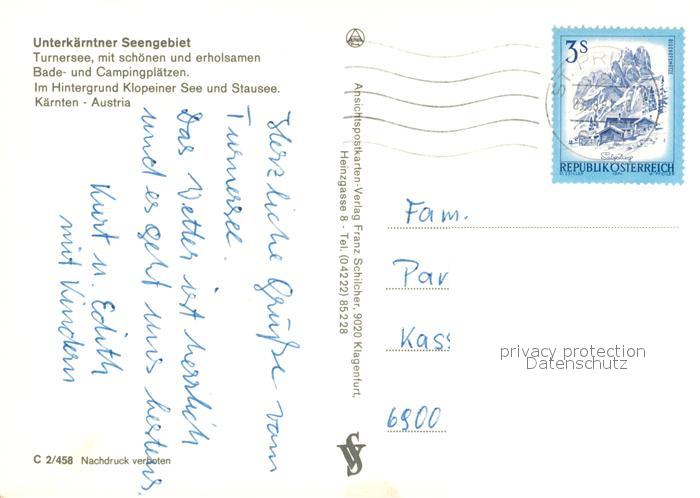 Unterkärntner Seengebiet
Turnersee, mit schönen und erholsamen
Bade- und Campingplätzen.
Im Hintergrund Klopeiner See und Stausee.
Kärnten - Austria
Herzliche Grüße vom
Turnersee.
Das Wetter ist herrlich
und es geht uns bestens.
Kurt u. Edith
mit Kindern
C 2/458 Nachdruck verboten
Ansichtspostkarten-Verlag Franz Schilcher, 9020 Klagenfurt,
Heinzgasse 8 - Tel. (04222) 85228
3 S
REPUBLIK ÖSTERREICH
Fam.
Par
Kass
privacy protection
Datenschutz
6900